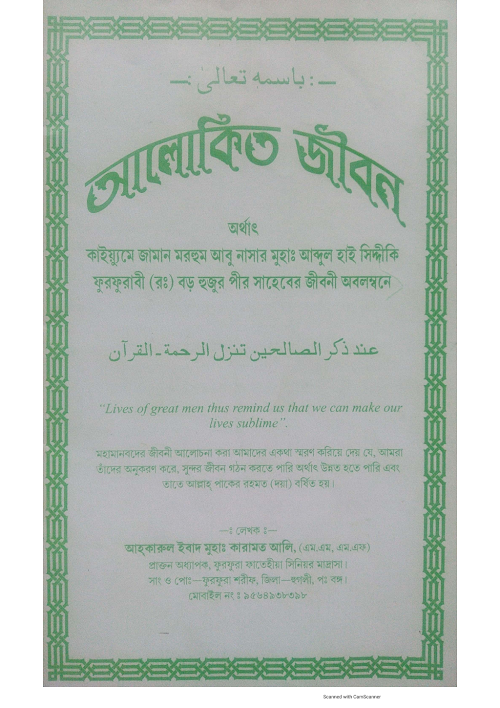 —: باسمه تعالىٰ :—
আলোকিত জীবন
অর্থাৎ
কাইয়্যুমে জামান মরহুম আবু নাসার মুহাঃ আব্দুল হাই সিদ্দীকি
ফুরফুরাবী (রঃ) বড় হুজুর পীর সাহেবের জীবনী অবলম্বনে
عند ذكر الصالحين تنزل الرحمة ـ القرآن
“Lives of great men thus remind us that we can make our
lives sublime”.
মহামানবদের জীবনী আলোচনা করা আমাদের একথা স্মরণ করিয়ে দেয় যে, আমরা
তাঁদের অনুকরণ করে, সুন্দর জীবন গঠন করতে পারি অর্থাৎ উন্নত হতে পারি এবং
তাতে আল্লাহ্ পাকের রহমত (দয়া) বর্ষিত হয়।
—ঃ লেখক ঃ—
আহ্কারুল ইবাদ মুহাঃ কারামত আলি, (এম.এম, এম.এফ)
প্রাক্তন অধ্যাপক, ফুরফুরা ফাতেহীয়া সিনিয়র মাদ্রাসা।
সাং ও পোঃ—ফুরফুরা শরীফ, জিলা—হুগলী, পঃ বঙ্গ।
মোবাইল নং ঃ ৯৫৬৪৯৩৮৩৯৮
Scanned with CamScanner